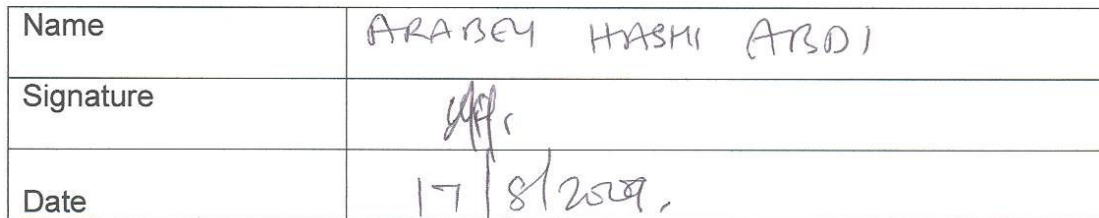 Name ARABEY HASHI ABDI
Signature
Date 17/8/2009.